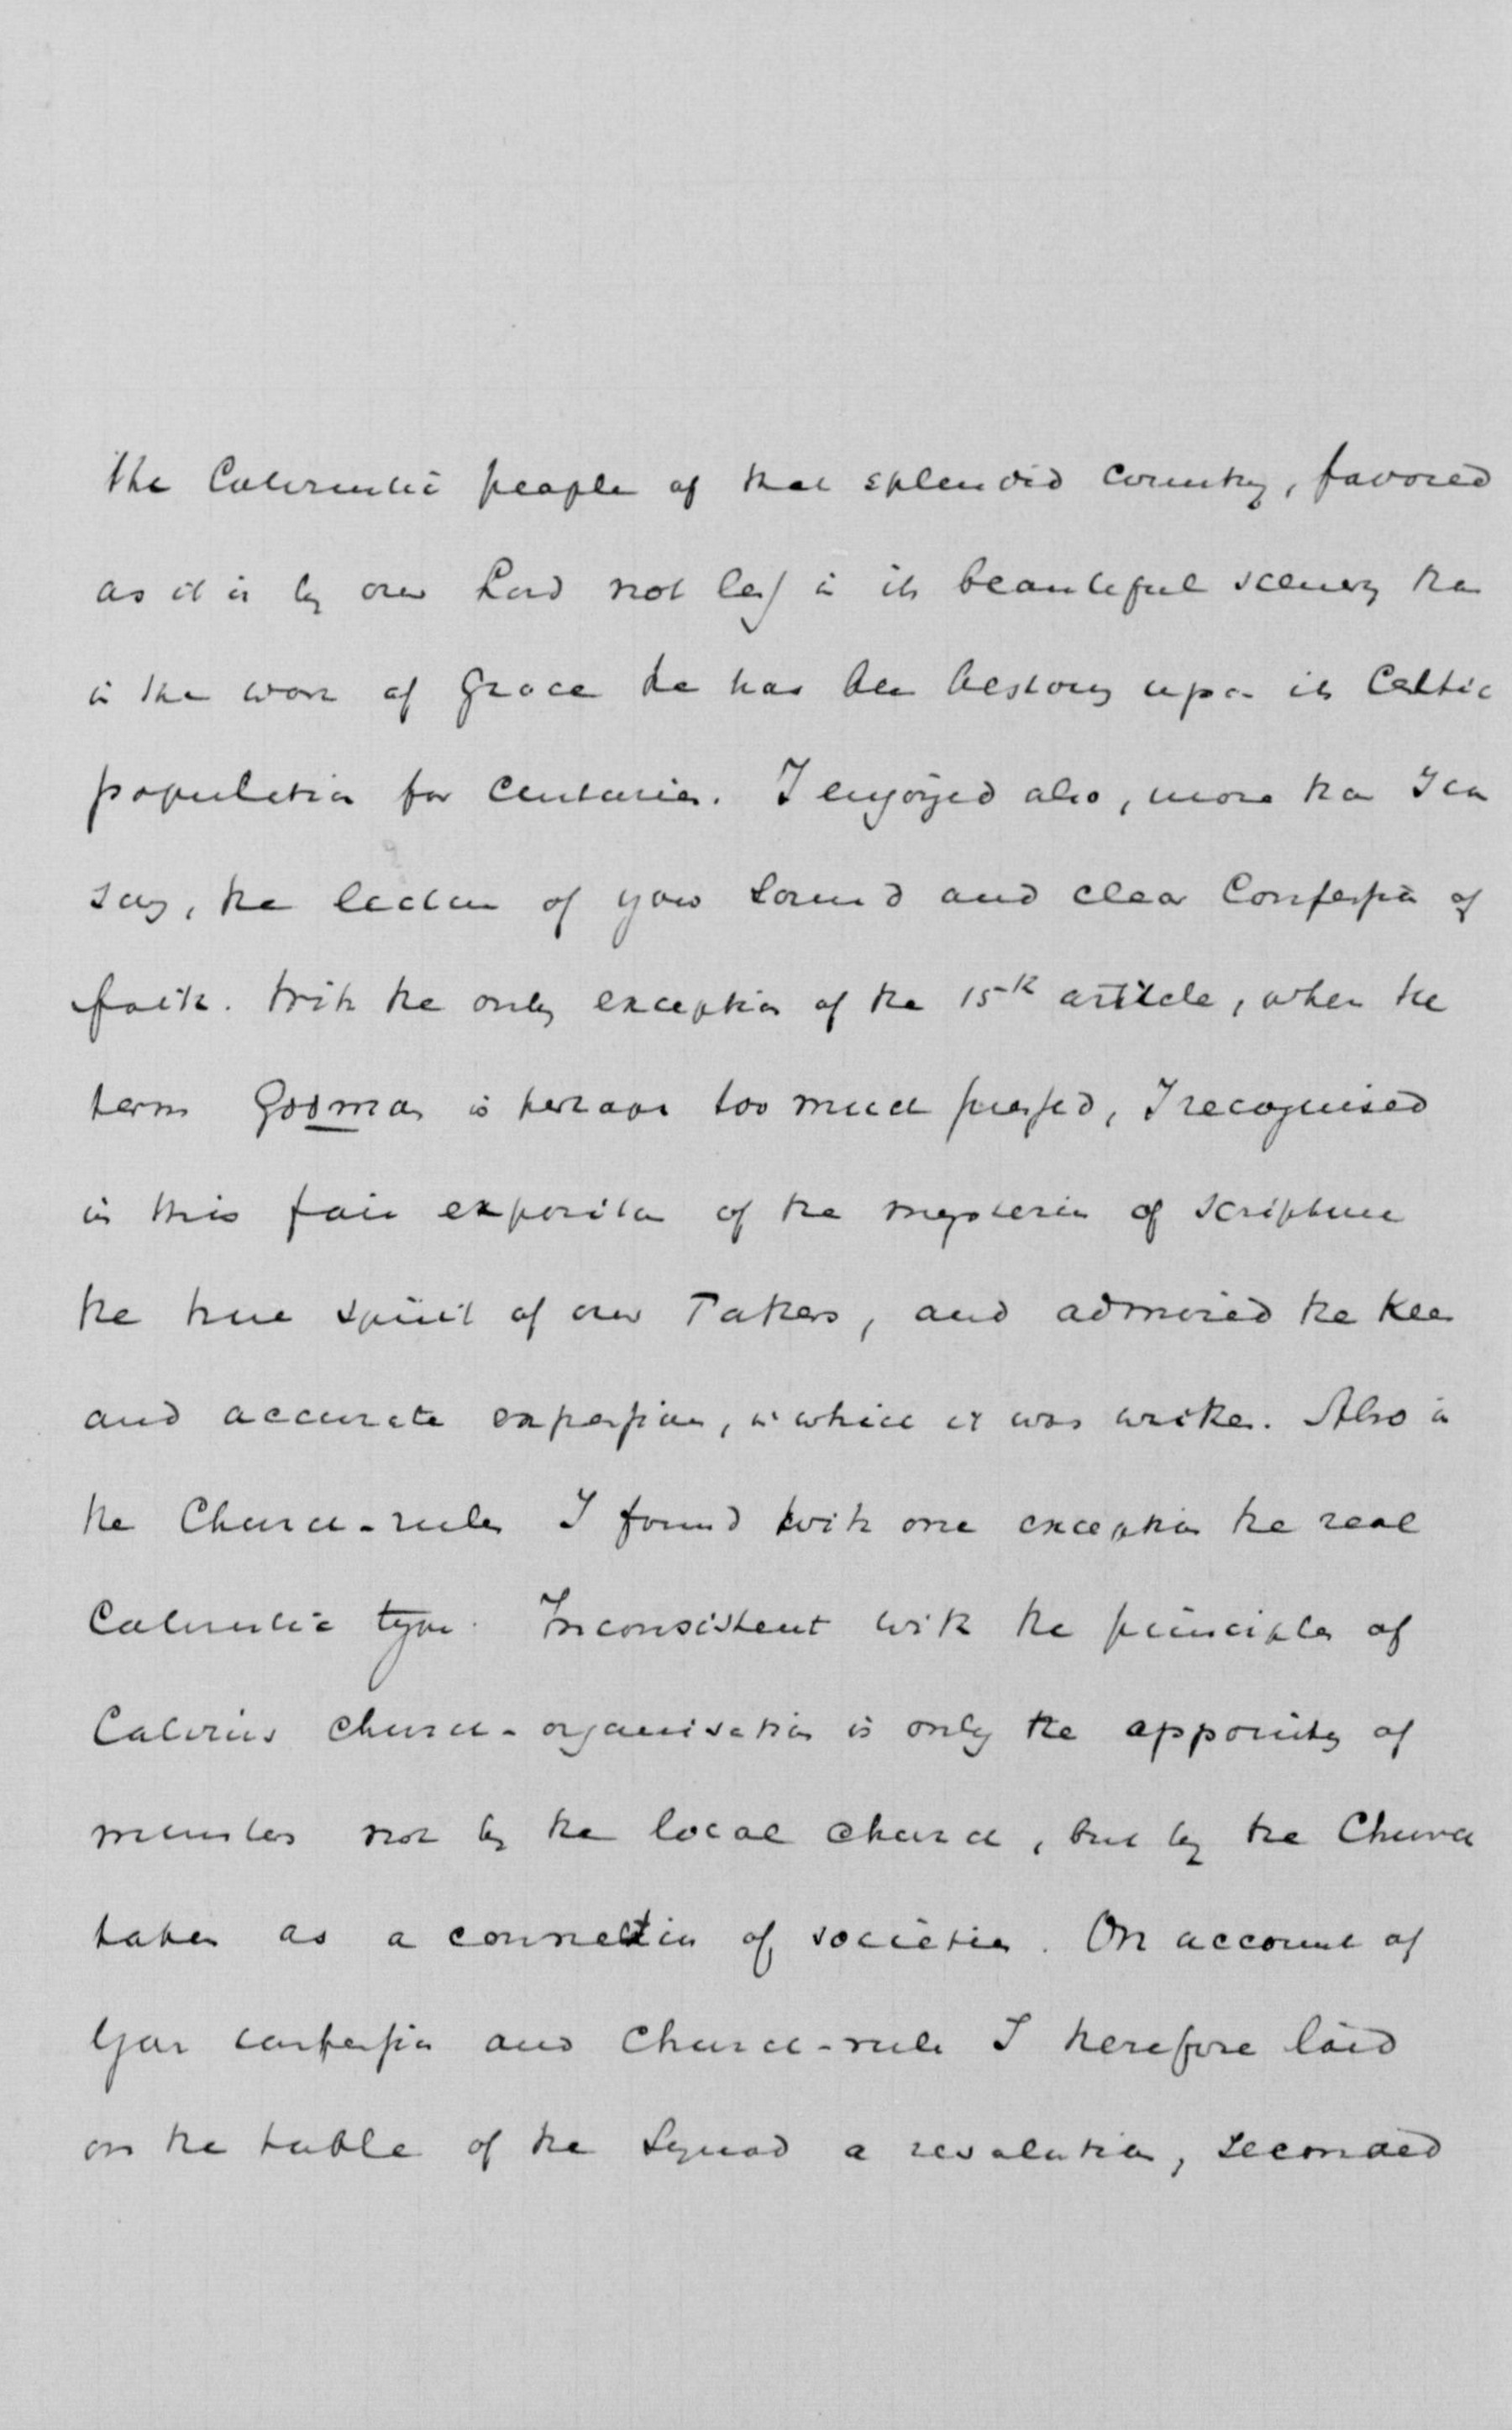 the Calvinistic people of that splendid country, favored
as it is by our Lord not less in its beautiful scenery than
in the work of grace he has been bestowing upon its Celtic
population for centuries. I enjoyed also, more than I can
say, the lecture of your sound and clear Confession of
faith. With the only exception of the 15th article, when the
term Godman is perhaps too much pressed, I recognised
in this fair exposition of the mysteries of Scripture
the true spirit of our Fathers, and admired the keen
and accurate expression, in which it was written. Also in
the Church-rules I found with one exception the real
Calvinistic type. Inconsistent with the principles of
Calvins church-organisation is only the appointing of
ministers not by the local church, but by the Church
taken as a connection of societies. On account of
Your confession and Church-rule I therefore laid
on the table of the Synod a resolution, seconded